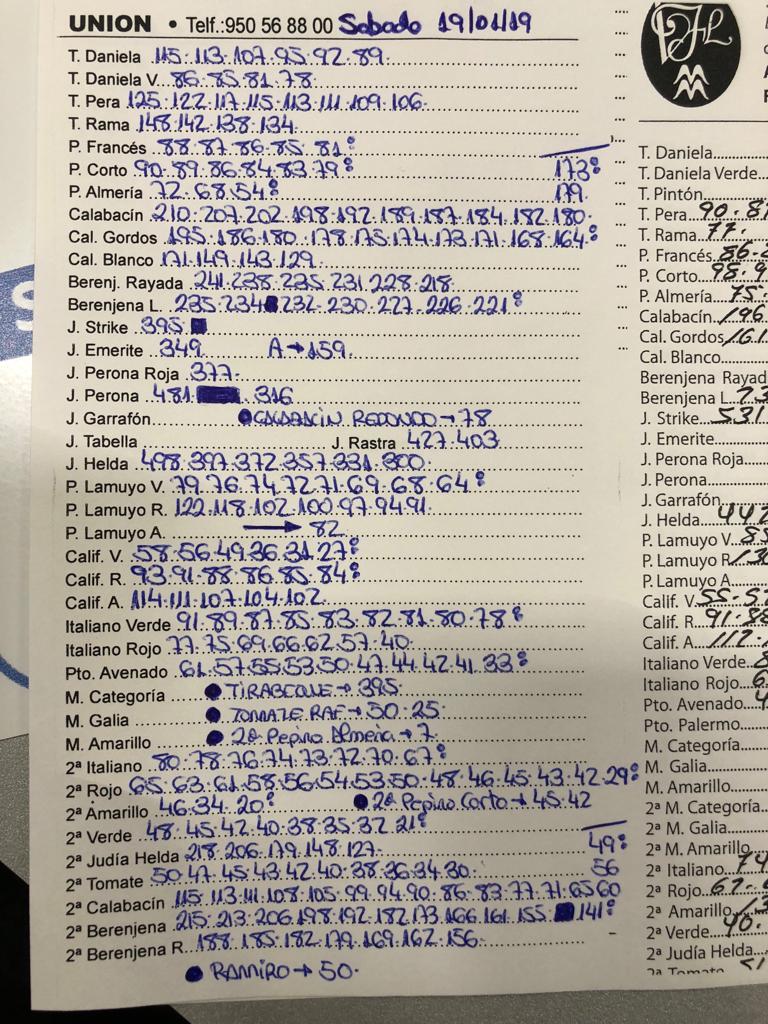 UNION • Telf.:950 56 88 00 Sabado 19/01/19
T. Daniela 115.113.107.95.92.89.
T. Daniela V. 86.85.81.78.
T. Pera 125.122.117.115.113.111.109.106.
T. Rama 148.142.138.134.
P. Francés 88.87.86.85.81:
P. Corto 90.89.86.84.83.79: 173:
P. Almería 72.68.54: 179.
Calabacín 210.207.202.198.192.189.187.184.182.180.
Cal. Gordos 195.186.180.178.175.174.173.171.168.164:
Cal. Blanco 171.149.143.129.
Berenj. Rayada 241.238.235.231.228.218.
Berenjena L. 235.234.232.230.227.226.221:
J. Strike 395
J. Emerite 349. A→159.
J. Perona Roja 377.
J. Perona 481. 316
J. Garrafón CALABACIN REDONDO→78
J. Tabella J. Rastra 427.403
J. Helda 498.397.372.357.331.300.
P. Lamuyo V. 79.76.74.72.71.69.68.64:
P. Lamuyo R. 122.118.102.100.97.94.91.
P. Lamuyo A. → 82.
Calif. V. 58.56.49.36.31.27:
Calif. R. 93.91.88.86.85.84:
Calif. A. 114.111.107.104.102.
Italiano Verde 91.89.87.85.83.82.81.80.78:
Italiano Rojo 77.75.69.66.62.57.40.
Pto. Avenado 61.57.55.53.50.47.44.42.41.33:
M. Categoría • TIRABEQUE→395
M. Galia • TOMATE RAF→50.25.
M. Amarillo • 2ª Pepino Almeria→7.
2ª Italiano 80.78.76.74.73.72.70.67:
2ª Rojo 65.63.61.58.56.54.53.50.48.46.45.43.42.29:
2ª Amarillo 46.34.20: • 2ª Pepino Corto→45.42
2ª Verde 48.45.42.40.38.35.32.21:
2ª Judía Helda 218.206.179.148.127. 49:
2ª Tomate 50.47.45.43.42.40.38.36.34.30. 56
2ª Calabacín 115.113.111.108.105.99.94.90.86.83.77.71.65.60
2ª Berenjena 215.213.206.198.192.182.173.166.161.155. 141:
2ª Berenjena R. 188.185.182.179.169.162.156.
• RAMIRO→50.
T. Daniela
T. Daniela Verde
T. Pintón
T. Pera 90.
T. Rama 77.
P. Francés 86.
P. Corto 98.
P. Almería 75.
Calabacín 196
Cal. Gordos 161
Cal. Blanco
Berenjena Rayad
Berenjena L.
J. Strike 531
J. Emerite
J. Perona Roja
J. Perona
J. Garrafón
J. Helda 442
P. Lamuyo V.
P. Lamuyo R.
P. Lamuyo A
Calif. V. 55.
Calif. R. 91.88
Calif. A. 112.
Italiano Verde
Italiano Rojo
Pto. Avenado
Pto. Palermo
M. Categoría
M. Galia
M. Amarillo
2ª M. Categoría
2ª M. Galia
2ª M. Amarillo
2ª Italiano 74
2ª Rojo 67.
2ª Amarillo
2ª Verde 40.
2ª Judía Helda
2ª Tomate